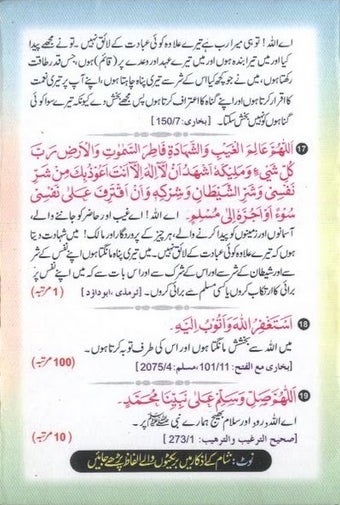 اے اللہ! تو ہی میرا رب ہے تیرے علاوہ کوئی عبادت کے لائق نہیں۔ تو نے مجھے پیدا
کیا اور میں تیرا بندہ ہوں اور میں تیرے عہد اور وعدے پر (قائم) ہوں، جس قدر طاقت
رکھتا ہوں، میں نے جو کچھ کیا اس کے شر سے تیری پناہ چاہتا ہوں، اپنے آپ پر تیری نعمت
کا اقرار کرتا ہوں اور اپنے گناہ کا اعتراف کرتا ہوں پس مجھے بخش دے کیونکہ تیرے سوا کوئی
گناہوں کو نہیں بخش سکتا۔ [بخاری: 150/7]
17 اَللّٰهُمَّ عَالِمَ الْغَيْبِ وَالشَّهَادَةِ فَاطِرَ السَّمٰوٰتِ وَالْاَرْضِ رَبَّ
كُلِّ شَىْءٍ وَمَلِيْكَهٗ اَشْهَدُ اَنْ لَّا اِلٰهَ اِلَّا اَنْتَ اَعُوْذُ بِكَ مِنْ شَرِّ
نَفْسِىْ وَشَرِّ الشَّيْطَانِ وَشِرْكِهٖ وَاَنْ اَقْتَرِفَ عَلٰى نَفْسِىْ
سُوْءً اَوْ اَجُرَّهٗ اِلٰى مُسْلِمٍ۔ اے اللہ! اے غیب اور حاضر کو جاننے والے،
آسمانوں اور زمینوں کو پیدا کرنے والے، ہر چیز کے پروردگار اور مالک! میں شہادت دیتا
ہوں کہ تیرے علاوہ کوئی عبادت کے لائق نہیں۔ میں تیری پناہ مانگتا ہوں اپنے نفس کے شر
سے اور شیطان کے شر سے اور اس کے شرک سے اور اس بات سے کہ میں اپنے نفس پر
برائی کا ارتکاب کروں یا کسی مسلم سے برائی کروں۔ [ترمذی، ابوداؤد] (1 مرتبہ)
18 اَسْتَغْفِرُ اللّٰهَ وَاَتُوْبُ اِلَيْهِ۔
میں اللہ سے بخشش مانگتا ہوں اور اس کی طرف توبہ کرتا ہوں۔
[بخاری مع الفتح: 101/11، مسلم: 2075/4] (100 مرتبہ)
19 اَللّٰهُمَّ صَلِّ وَسَلِّمْ عَلٰى نَبِيِّنَا مُحَمَّدٍ۔
اے اللہ درود اور سلام بھیج ہمارے نبی ﷺ پر۔
[صحیح الترغیب والترهیب: 273/1] (10 مرتبہ)
نوٹ: شام کے اذکار میں بریکٹوں والے الفاظ پڑھے جائیں